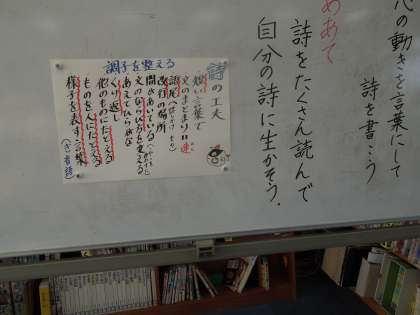 心の動きを言葉にして
詩を書こう
めあて
詩をたくさん読んで
自分の詩に生かそう。
詩の工夫
短い言葉で
文のまとまり=連
調子を整える
改行の場所
間をあいている
文のならび方を変える
あえてひらがな
くり返し
他のものにたとえる
ものを人にたとえる
様子を表す言葉